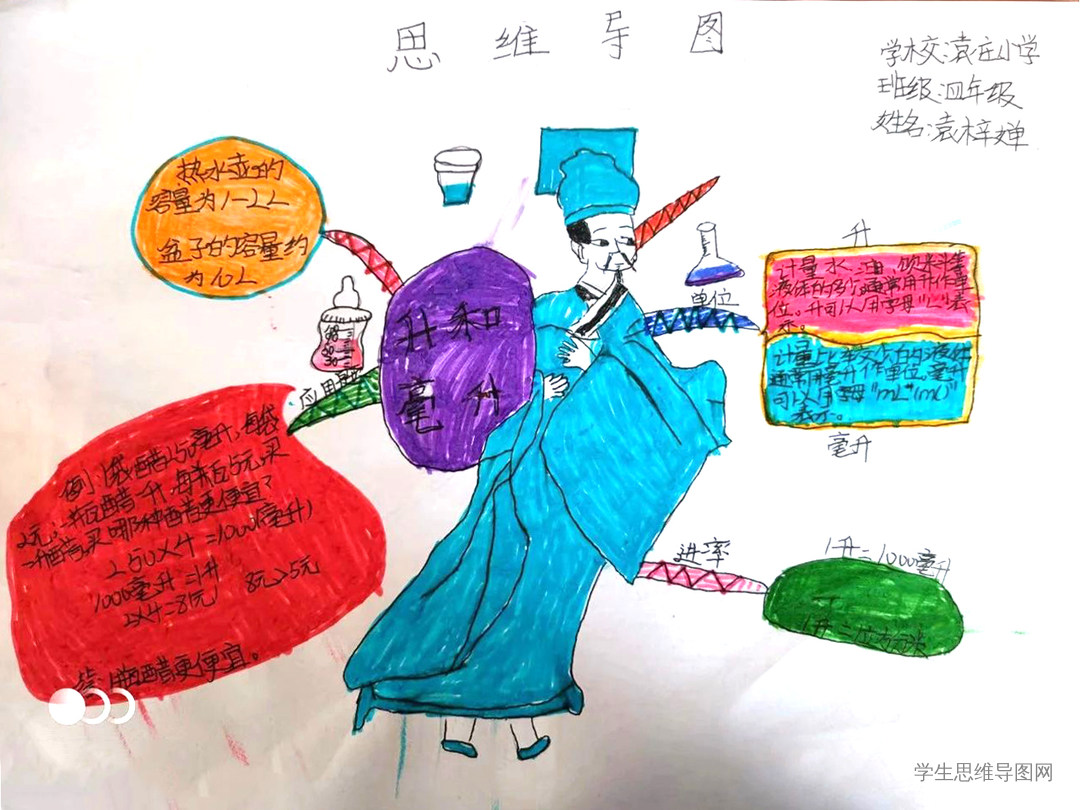 思维导图
学校:袁庄小学
班级:四年级
姓名:袁梓婵
热水壶的
容量为1-2L
盆子的容量约
为10L
升和
毫升
单位
升
计量水、油、饮料等
液体的多少,通常用升作单
位。升可以用字母"L"表
示。
计量比较少的液体
通常用毫升作单位,毫升
可以用字母"mL"(ml)
表示。
毫升
应用
例:1袋醋250毫升,每袋
2元;一瓶醋一升,每瓶5元,买
一升醋,买哪种醋更便宜?
250×4=1000(毫升)
1000毫升=1升
2×4=8(元) 8元>5元
答:瓶醋更便宜。
进率
1升=1000毫升
1升=
学生思维导图网